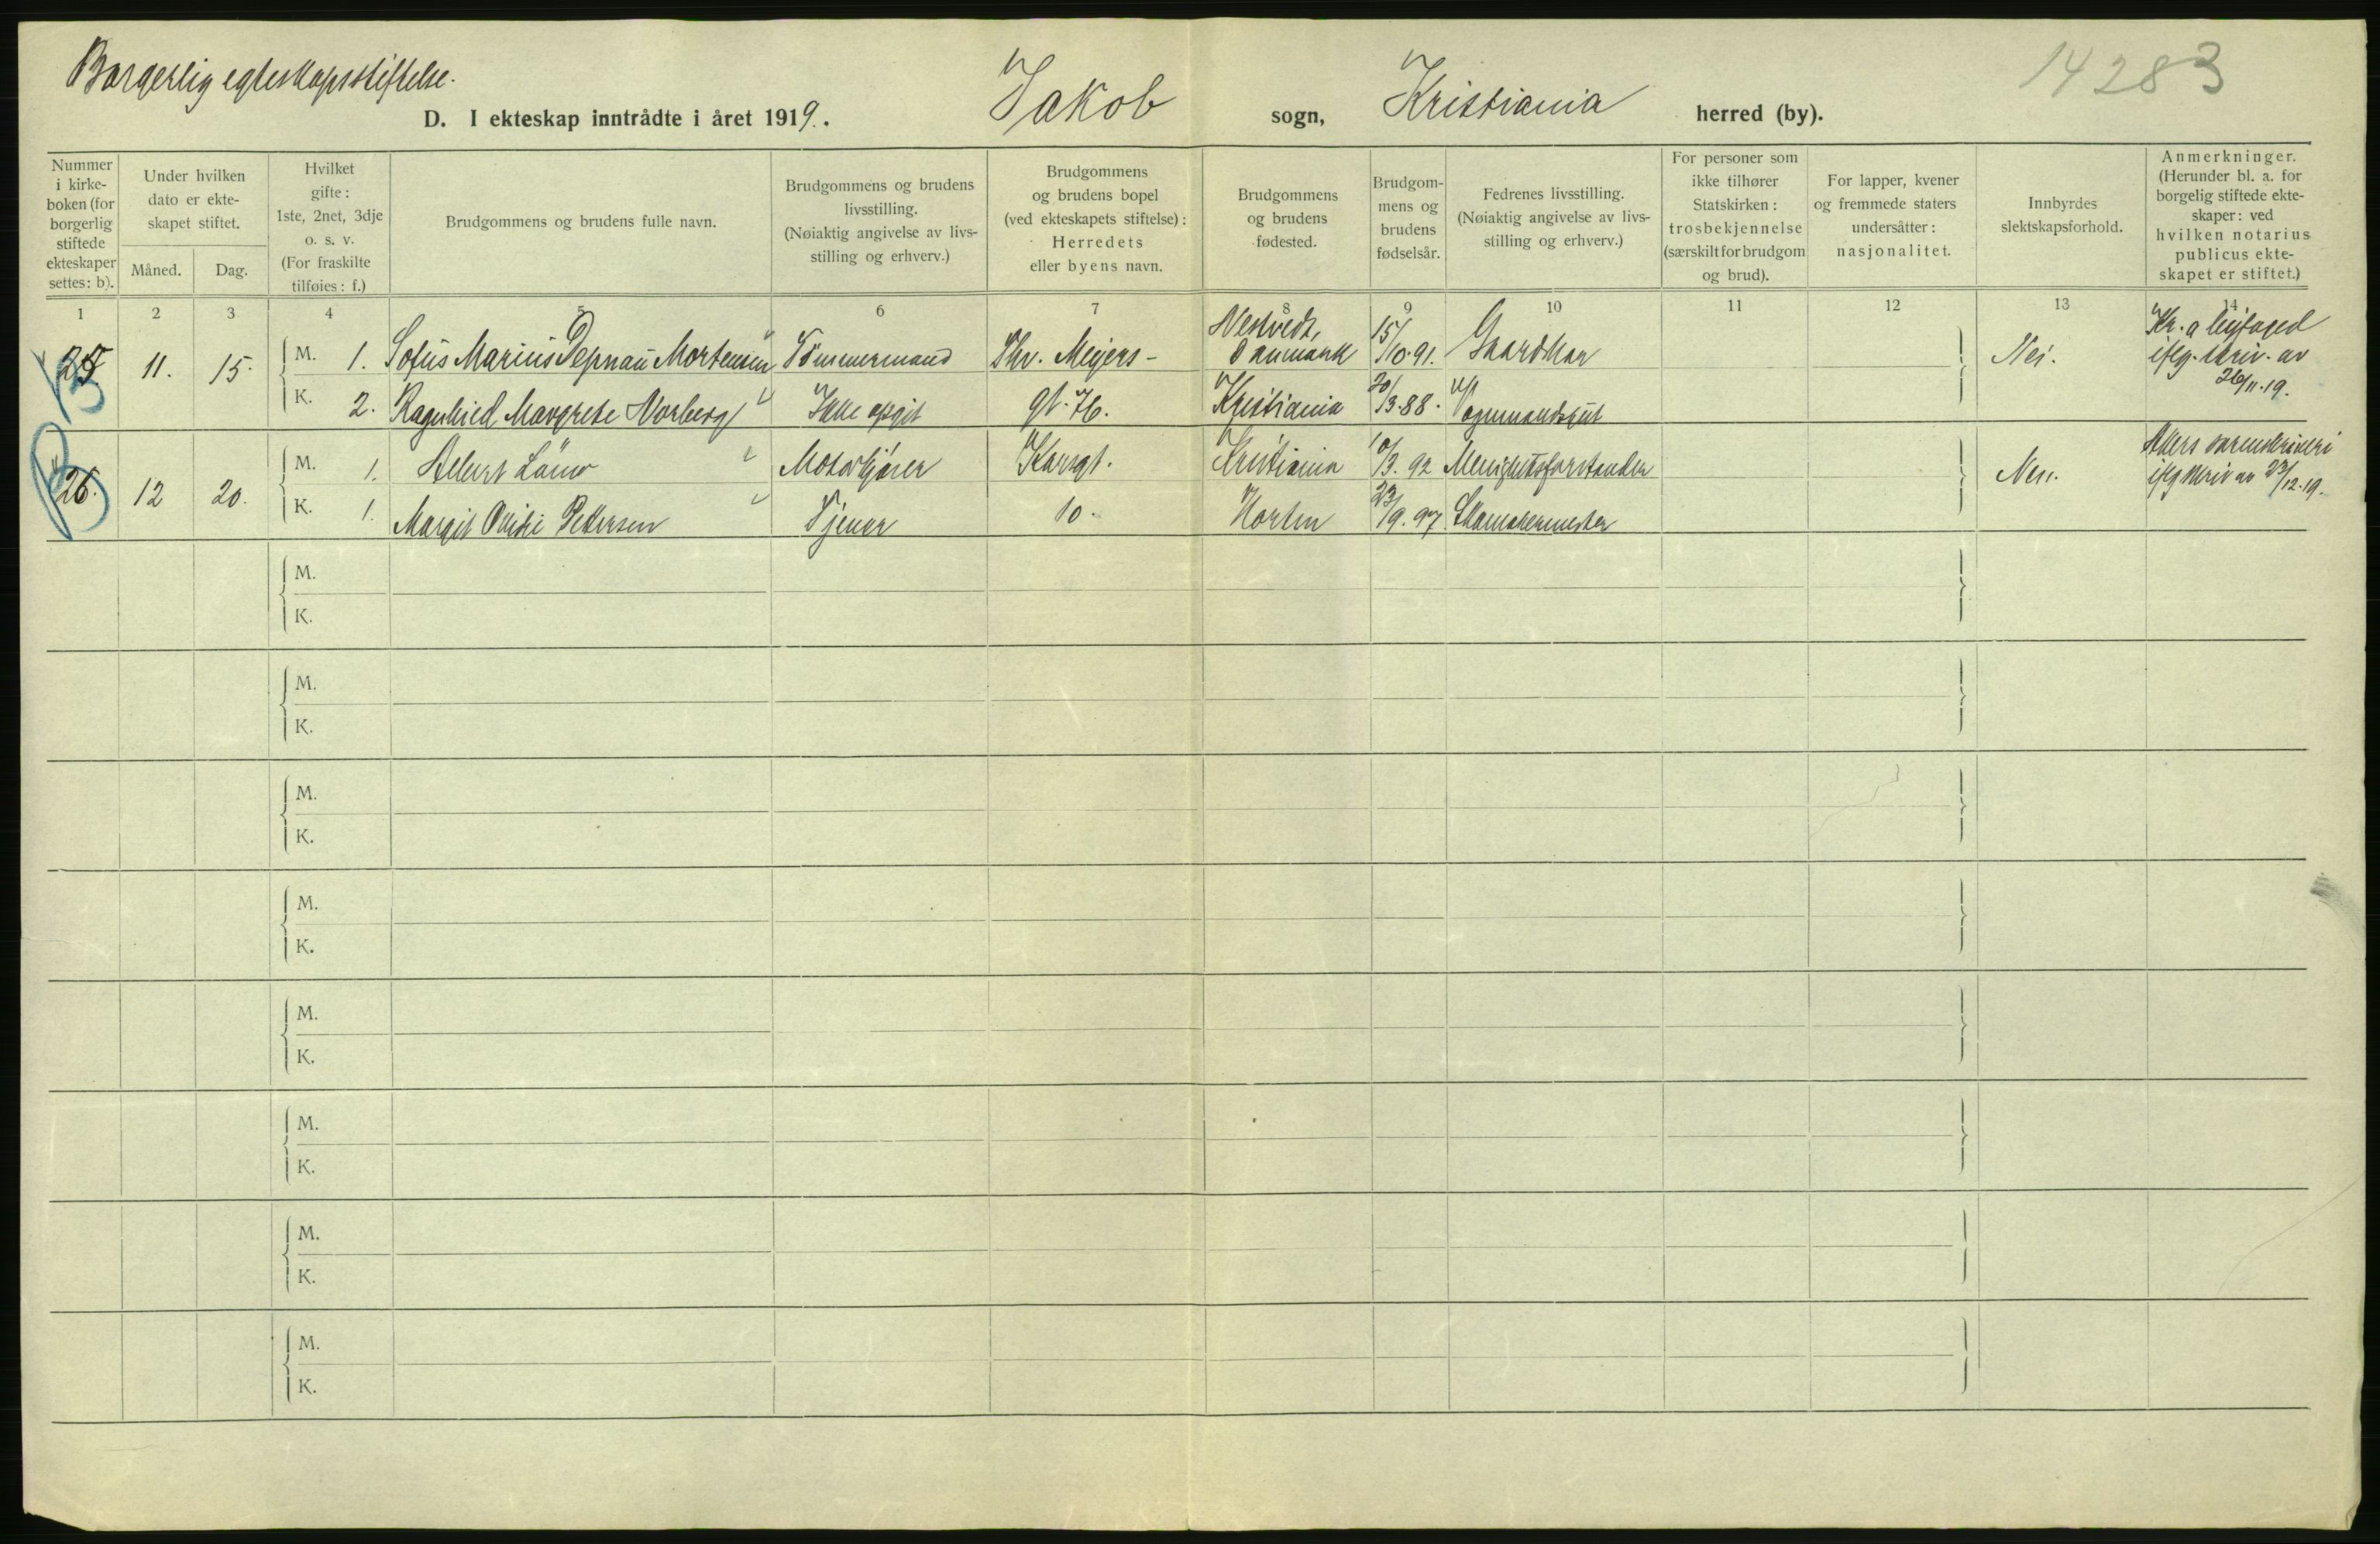 Borgerlig egteskapsstiftelse.
14283
D. I ekteskap inntrådte i året 1919. Jakob sogn, Kristiania herred (by).
Nummer i kirkeboken (for borgerlig stiftede ekteskaper settes: b).
Under hvilken dato er ekteskapet stiftet.
Måned. Dag.
Hvilket gifte: 1ste, 2net, 3dje o. s. v. (For fraskilte tilføies: f.)
Brudgommens og brudens fulle navn.
Brudgommens og brudens livsstilling. (Nøiaktig angivelse av livsstilling og erhverv.)
Brudgommens og brudens bopel (ved ekteskapets stiftelse): Herredets eller byens navn.
Brudgommens og brudens fødested.
Brudgommens og brudens fødselsår.
Fedrenes livsstilling. (Nøiaktig angivelse av livsstilling og erhverv.)
For personer som ikke tilhører Statskirken: trosbekjennelse (særskilt for brudgom og brud).
For lapper, kvener og fremmede staters undersåtter: nasjonalitet.
Innbyrdes slektskapsforhold.
Anmerkninger. (Herunder bl. a. for borgelig stiftede ekteskaper: ved hvilken notarius publicus ekteskapet er stiftet.)
1 2 3 4 5 6 7 8 9 10 11 12 13 14
25 11. 15. M. 1. Sofus Marius Depnau Mortensen Tømmermand Thv. Meyers- Nestvedt, Danmark 15/10.91. Gaardskar Nei. Kr.a byfoged ifølg. skriv. av 26/11.19.
K. 2. Ragnhild Margrete Norberg Ikke opgit gt. 76. Kristiania 20/3.88. Vognmandskut
B 26. 12 20. M. 1. Albert Läuw Motorkjører Karsgt. Kristiania 10/3.92 Menighetsforstander Nei. Akers sorenskriveri ifølg skriv av 23/12.19.
K. 1. Margit Pettersen Tjener 10. Horten 23/9.97 Skomakermester
M.
K.
M.
K.
M.
K.
M.
K.
M.
K.
M.
K.
M.
K.
M.
K.